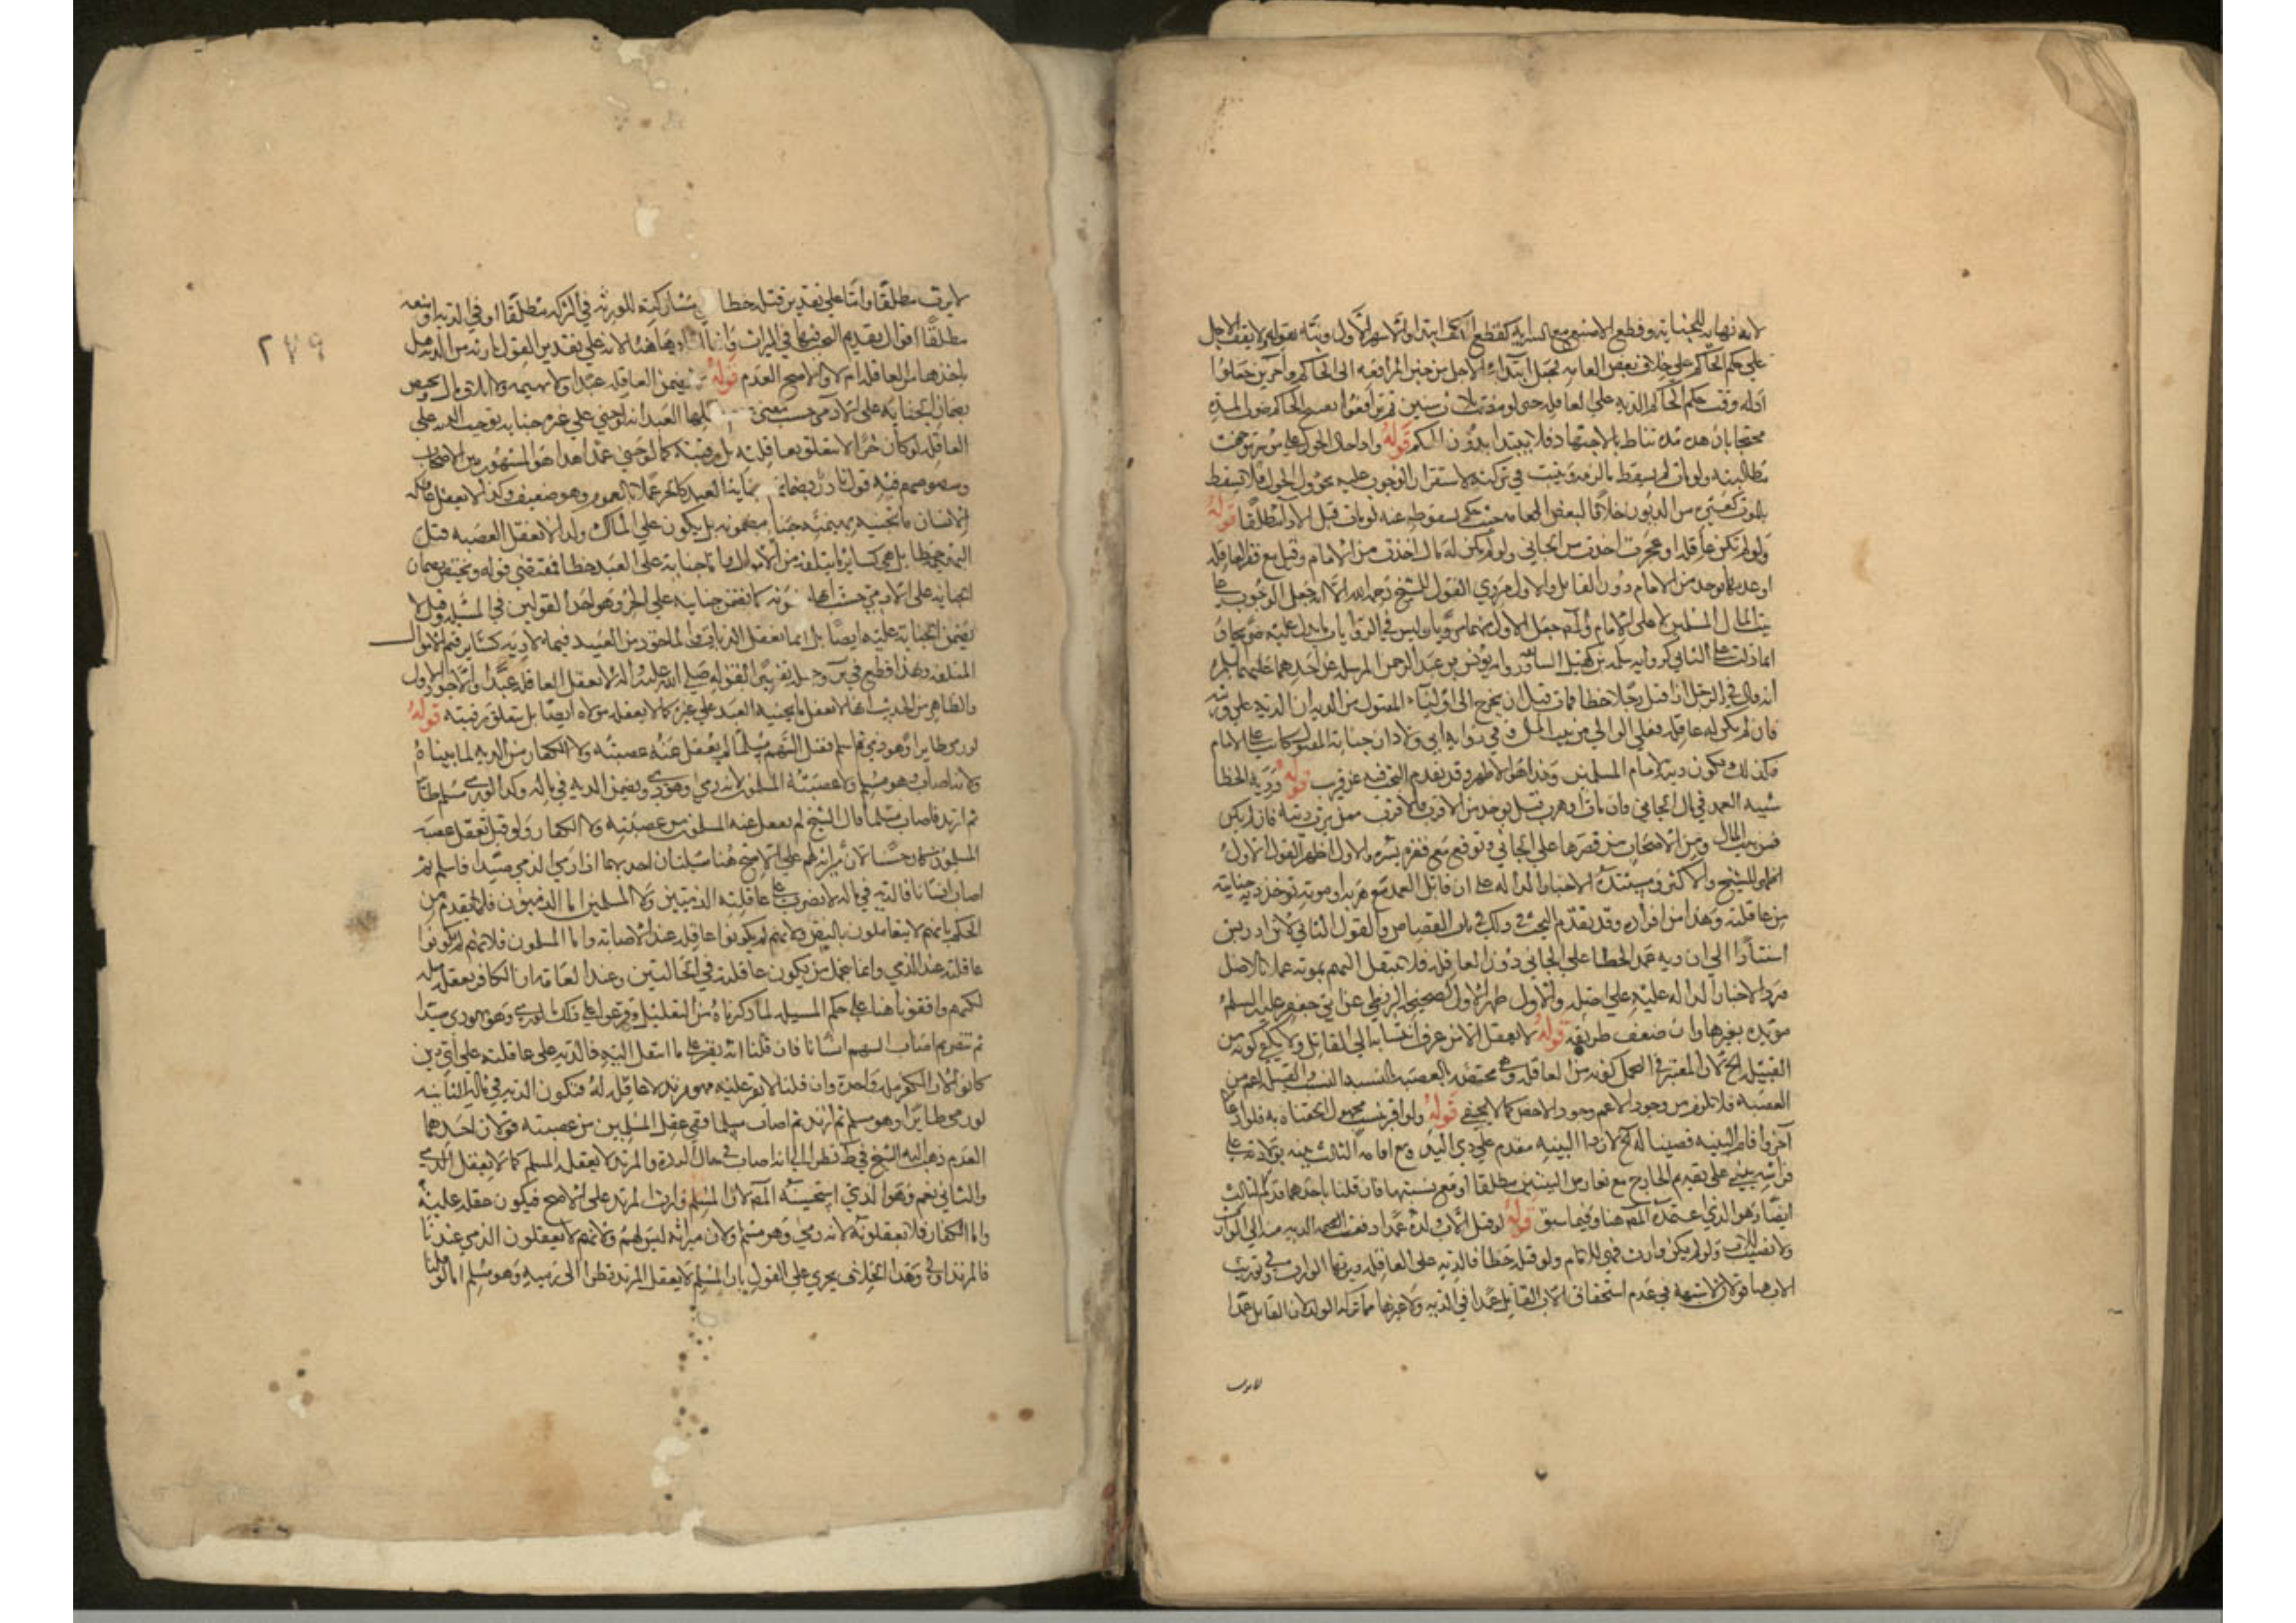 لانه نهاية للجناية وقطع الاصبع مع السراية كقطع الكف ابتداء والاشهر الاول ونبّه بقوله ولا يقف الاجل
على حكم الحاكم على خلاف بعض العامه فجعل ابتداء الاجل من حين المرافعه الى الحاكم وآخرين جعلوا
اوله وقت حكم الحاكم بالدية على العاقله حتى لو مضت ثلاث سنين ثم ترافعوا الحاكم المدة
محتجا بان هذه مدة تناط بالاجتهاد فلا يبتدا بدون الحكم قوله واذا حال الحول على موسر توجهت
مطالبته ولو مات لم يسقط ما لزمه ويثبت في تركته لاستقرار الوجوب عليه بحؤول الحول فلا يسقط
بالموت كغيره من الديون خلافا لبعض العامه حيث حكم بسقوطه عنه لو مات قبل الاداء مطلقا قوله
ولو لم تكن عاقله او عجزت اخذت من الجاني ولو لم يكن له مال اخذت من الامام وقيل مع فقر العاقله
او عدمها يوخذ من الامام دون القاتل والاول مروي القول للشيخ رحمه الله الا انه جعل الوجوب على
بيت مال المسلمين لا على الامام والمصـ جعل الاول منهما مرويا وليس في الروايات ما يدل عليه صريحا و
انما دلت على الثاني كرواية سلمة بن كهيل السابقه ورواية يونس بن عبد الرحمن المرسله عن احدهما عليهما السلم
انه قال في الرجل اذا قتل رجلا خطا فمات قبل ان يخرج الى اولياء المقتول من الدية ان الدية على ورثته
فان لم يكن له عاقله فعلى الوالي من بيت المال وفي رواية ابي ولاد ان جناية المقتول كانت على الامام
فكذلك تكون ديته لامام المسلمين وهذا هو الاظهر وقد تقدم البحث فيه عن قريب قوله ودية الخطا
شبيه العمد في مال الجاني فان مات او هرب قيل يوخذ من الاقرب فالاقرب ممن يرث ديته فان لم يكن
فمن بيت المال ومن الاصحاب من قصرها على الجاني وتوقع مع فقره يسره والاول اظهر القول الاول
للشيخ والاكثر ومستنده الاخبار الدالة على ان قاتل العمد مع هربه او موته توخذ دية جنايته
من عاقلته وهذا من افراده وقد تقدم البحث في ذلك في باب القصاص والقول الثاني لابن ادريس
استنادا الى ان دية عمد الخطا على الجاني دون العاقله فلا ينتقل اليهم بموته عملا بالاصل
فرد الاخبار الدالة عليه على اصله والاول اظهر لصحيحة البزنطي عن ابي جعفر عليه السلم
مؤيدة بغيرها وان ضعف طريقه قوله لا يعقل الا من عرف انتسابه الى القاتل ولا يكفي كونه من
القبيله الخ لان المعتبر في التحمل كونه من العاقله وهي مختصه بالعصبه بالنسبة والقبيله اعم من
العصبه فلا يلزم من وجود الاعم وجود الاخص كما لا يخفى قوله ولو اقر بنسب مجهول الحقناه به فلو ادعاه
آخر واقام البينه قضينا له الخ لان ذا البينه مقدم على ذي اليد ومع اقامة الثالث بينه بولادته على
فراشه يبنى على تقديم الخارج مع تعارض البينتين مطلقا او مع تسبيبهما فان قلنا باحدهما قدم الثالث
ايضا وهو الذي اعتمده المصـ هنا وفيما سبق قوله لو قتل الاب ولده عمدا دفعت الدية منه الى الوارث
ولا نصيب للاب ولو لم يكن وارث فهي للامام ولو قتله خطا فالدية على العاقله ويرثها الوارث وفي توريث
الاب هنا قولان لا شبهة في عدم استحقاق الاب القاتل عمدا في الدية ولا غيرها مما تركه الولد لان القاتل عمدا
لا يرث
٢٧٩
لا يرث مطلقا واما على تقدير قتله خطا مشاركته للورثه في التركه مطلقا او في الديه او منعه
مطلقا اقوال تقديم البحث فيها في الميراث وانما هنا لانه على تقدير القول بارثه من الديه هل
ياخذها من العاقله ام لا والاصح العدم قوله ولا يضمن العاقله عبدا ولا بهيمه ولا اتلاف مال ويختص
بضمان الجناية على الادمي حسب معنى العبد انه لو جنى على غيره جناية توجب الدية على
العاقله لو كان حرا لا يتعلق بعاقلته بل برقبته كما لو جنى عمدا هذا هو المشهور بين الاصحاب
وفيه قول نادر بضمانه جناية العبد كالحر عملا بالعموم وهو ضعيف وكذا لا يعقل عاقله
الانسان ما تجنيه بهيمته جناية مضمونه بل يكون على المالك ولذا لا تعقل العصبه قتل
البهيمه خطا بل هي كساير ما يتلفه من الاموال واما جنايته على العبد خطا فمقتضى قوله ويختص بضمان
الجناية على الادمي حسب كما تضمن جنايته على الحر وهو احد القولين في المسئله وقيل لا
يضمن الجناية عليه ايضا بل انما تعقل الديات والماخوذ من العبيد قيمة لا دية كساير قيم الاموال
المتلفه وبهذا قطع في ير وجعله تفسيرا لقوله صلى الله عليه واله لا تعقل العاقله عبدا والاجود الاول
والظاهر من الحديث انها لا تعقل ما يجنيه العبد على غيره كما لا يعقله مولاه ايضا بل يتعلق برقبته قوله
لو رمى طايرا وهو ذمي ثم اسلم فقتل السهم مسلما لم يعقل عنه عصبته ولا الكفار من الدية لما بيناه
ولانه اصاب وهو مسلم ولا عصبته المسلمون لانه رمى وهو ذمي ويضمن الدية في ماله وكذا لو رمى مسلم طائرا
ثم ارتد فاصاب مسلما قال الشيخ لم يعقل عنه المسلمون من عصبته ولا الكفار ولو قيل تعقل عصبته
المسلمون كان حسنا لان ميراثه لهم على الاصح هنا مسئلتان احديهما اذا رمى الذمي صيدا فاسلم ثم
اصاب انسانا فالدية في ماله لا تضرب على عاقلته الذميين ولا المسلمين اما الذميون فلما تقدم من
الحكم بانهم لا يتعاقلون بالبعض ولانهم لم يكونوا عاقله عند الاصابه واما المسلمون فلانهم لم يكونوا
عاقلته عند الرمي وانما يتحمل من يكون عاقلته في الحالتين وعند العامة ان الكافر يعقل مثله
لكنهم وافقونا هنا على حكم المسئله لما ذكرناه من التعليل وفرعوا على ذلك ما لو رمى وهو يهودي صيدا
ثم تنصر ثم اصاب السهم انسانا فان قلنا انه يقر على ما انتقل اليه فالدية على عاقلته على اي دين
كانوا لان الكفر مله واحدة وان قلنا لا يقر عليه فهو مرتد لا عاقله له فتكون الدية في ماله الثانيه
لو رمى طايرا وهو مسلم ثم ارتد ثم اصاب مسلما ففي عقل المسلمين من عصبته قولان احدهما
العدم ذهب اليه الشيخ في ط نظرا الى انه اصاب في حال الردة والمرتد لا يعقله المسلم كما لا يعقل الذمي
والثاني نعم وهو الذي استحسنه المصـ لان المسلم وارث المرتد على الاصح فيكون عقله عليه
واما الكفار فلا يعقلونه لانه رمى وهو مسلم ولان ميراثه ليس لهم ولانهم لا يعقلون الذمي عندنا
فالمرتد اولى وهذا الخلاف يجري على القول بان المسلم لا يعقل المرتد نظرا الى رميه وهو مسلم اما لو قلنا